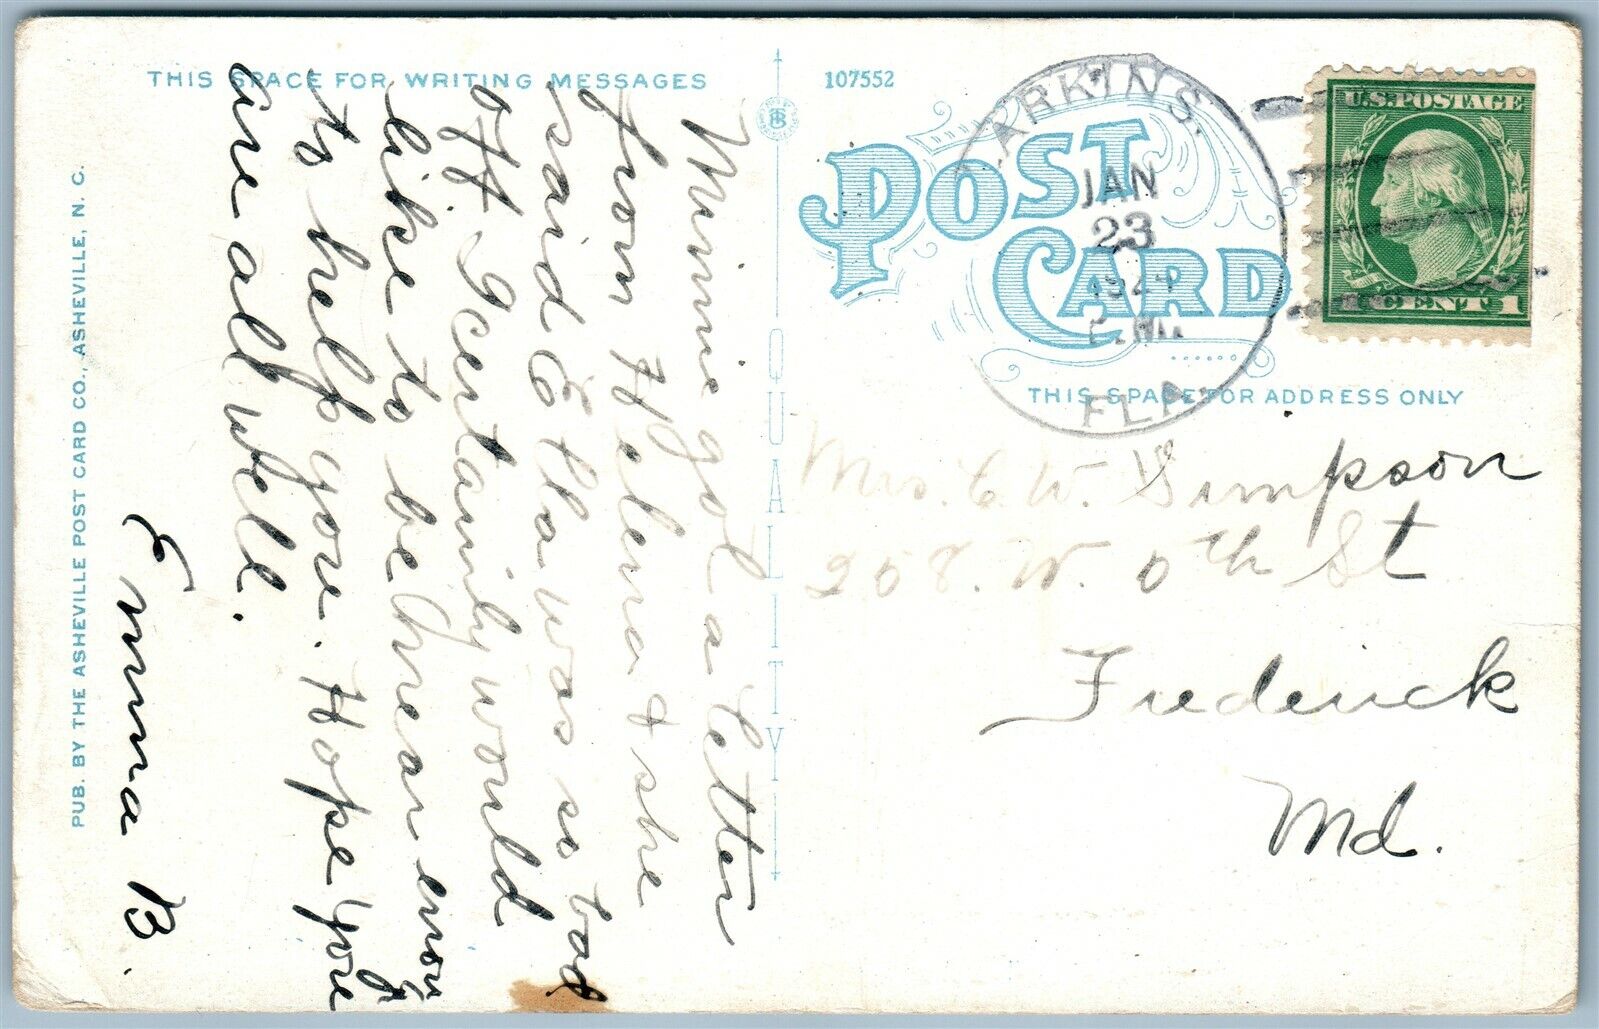 THIS SPACE FOR WRITING MESSAGES
107552
POST CARD
THIS SPACE FOR ADDRESS ONLY
ARKINS.
JAN
23
FLA.
U.S.POSTAGE
CENT 1
QUALITY
PUB. BY THE ASHEVILLE POST CARD CO., ASHEVILLE, N. C.
Minnie got a letter
from Helena & she
said Etha was so bad
off. I certainly would
like to be near enoug
to help you. Hope you
are all well.
Emma B.
Mrs. C. W. Simpson
208. W. 6th St
Frederick
Md.